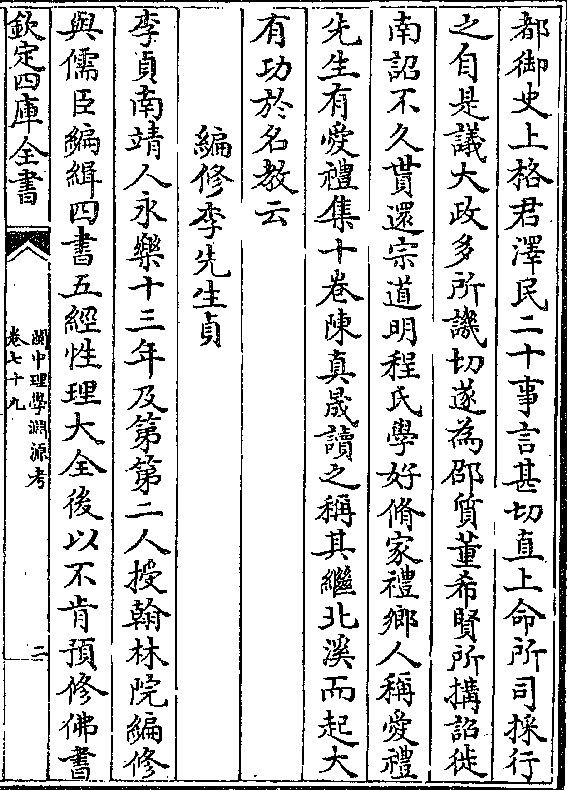 都御史上格君澤民二十事言甚切直上命所司採行
之自是議大政多所譏切遂為邵質董希賢所搆詔徙
南詔不久貰還宗道明程氏學好脩家禮鄉人稱愛禮
先生有愛禮集十卷陳真晟讀之稱其繼北溪而起大
有功於名教云
編修李先生貞
李貞南靖人永樂十三年及第第二人授翰林院編修
與儒臣編緝四書五經性理大全後以不肯預修佛書
欽定四庫全書
閩中理學淵源考
卷七十九
二